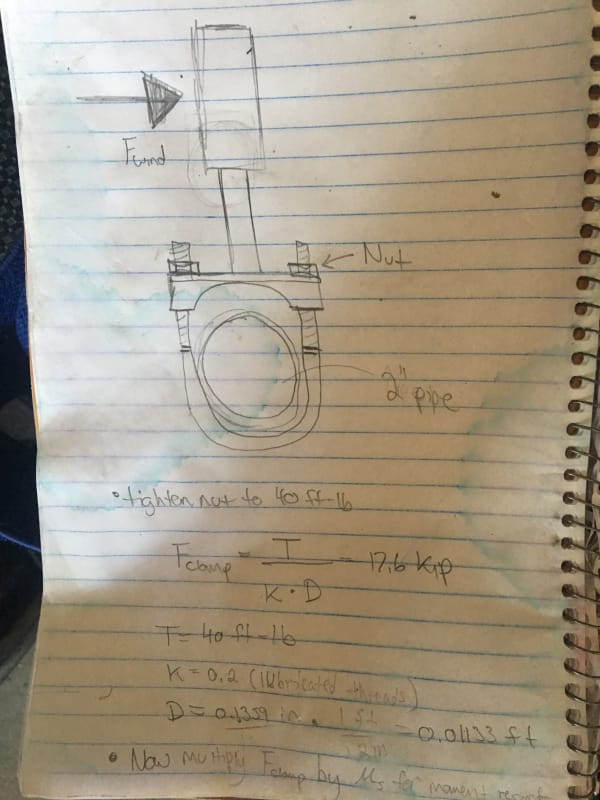 Fwind
Nut
2" pipe
• tighten nut to 40 ft-lb
Fclamp = T / K · D = 17.6 Kip
T = 40 ft-lb
K = 0.2 (lubricated threads)
D = 0.1359 in · 1 ft / 12 in = 0.01133 ft
• Now multiply Fclamp by Ms for moment